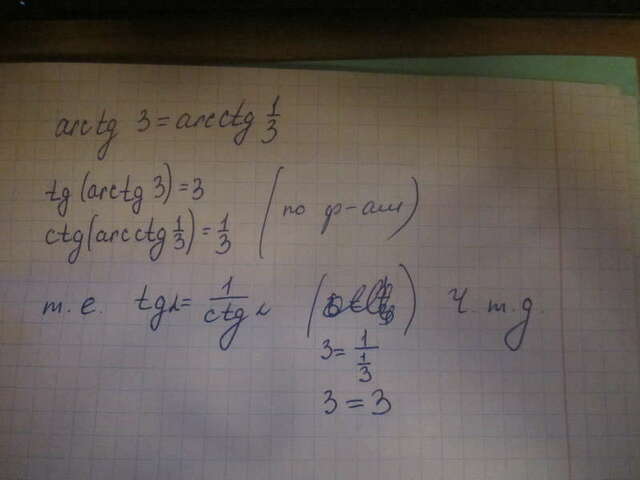 arctg 3 = arcctg 1/3
tg(arctg 3) = 3
ctg(arcctg 1/3) = 1/3 (по ф-лам)
т.е. tgα = 1/ctgα ч.т.д.
3 = 1/(1/3)
3 = 3